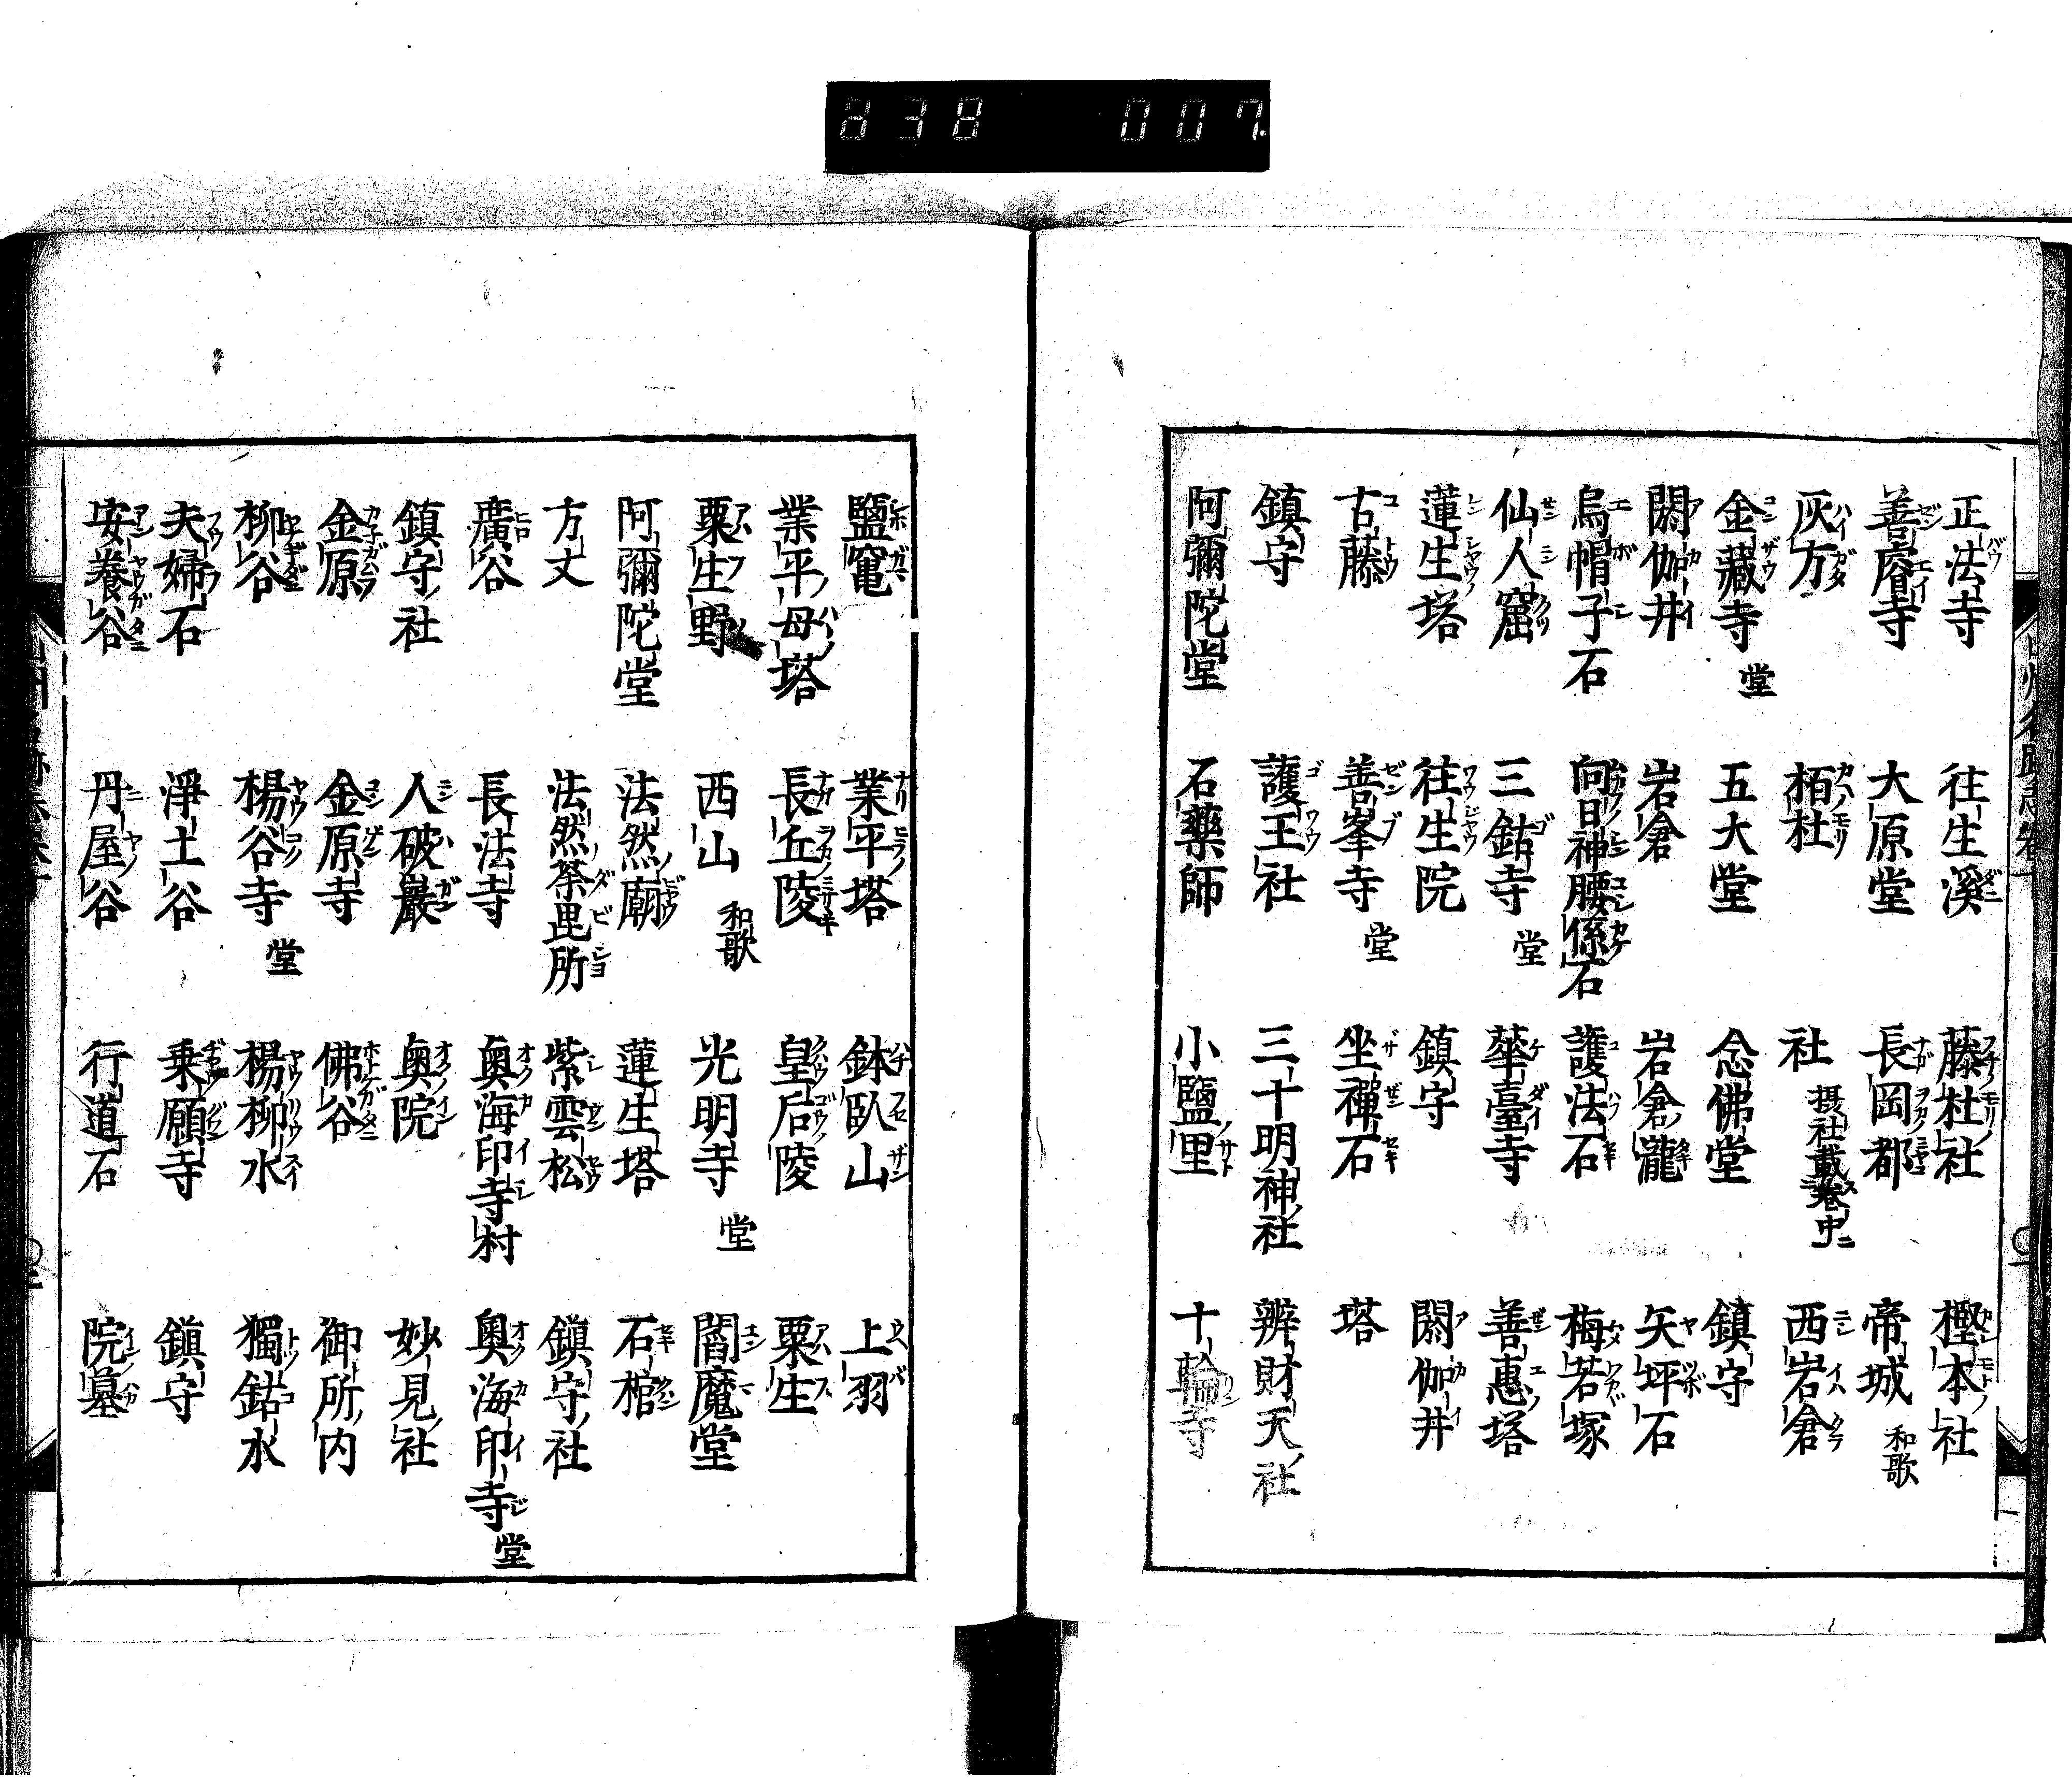 838 007
正法寺 往生溪 藤杜社 樫本社
善膚寺 大原堂 長岡都 帝城 和歌
灰方 栢杜 社 摂社載卷中 西岩倉
金藏寺 堂 五大堂 念佛堂 鎮守
閼伽井 岩倉 岩倉瀧 矢坪石
烏帽子石 向日神腰係石 護法石 梅若塚
仙人窟 三鈷寺 堂 華臺寺 善惠塔
蓮生塔 往生院 鎮守 閼伽井
古藤 善峯寺 堂 坐禪石 塔
鎮守 護王社 三十明神社 辨財天社
阿彌陀堂 石藥師 小鹽里 十輪寺
鹽竃 業平塔 鉢臥山 上羽
業平母塔 長丘陵 皇后陵 粟生
粟生野 西山 和歌 光明寺 堂 閻魔堂
阿彌陀堂 法然廟 蓮生塔 石棺
方丈 法然荼毘所 紫雲松 鎮守社
廣谷 長法寺 奥海印寺村 奥海印寺 堂
鎮守社 人破巖 奥院 妙見社
金原 金原寺 佛谷 御所内
柳谷 楊谷寺 堂 楊柳水 獨鈷水
夫婦石 淨土谷 乗願寺 鎮守
安養谷 丹屋谷 行道石 院墓